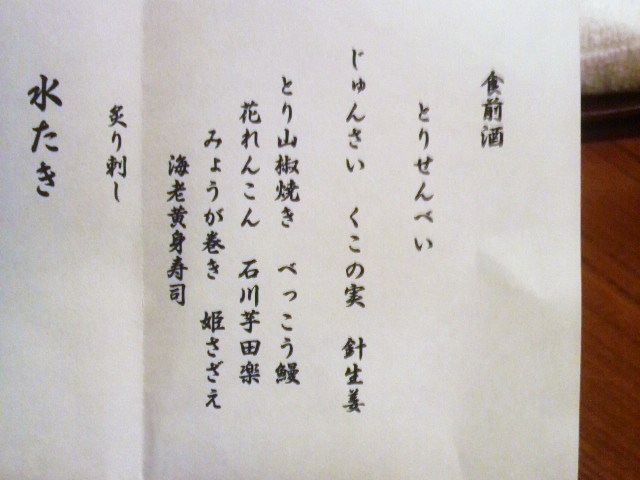 食前酒
とりせんべい
じゅんさい　くこの実　針生姜
とり山椒焼き　べっこう鰻
花れんこん　石川芋田楽
みょうが巻き　姫さざえ
海老黄身寿司
炙り刺し
水たき